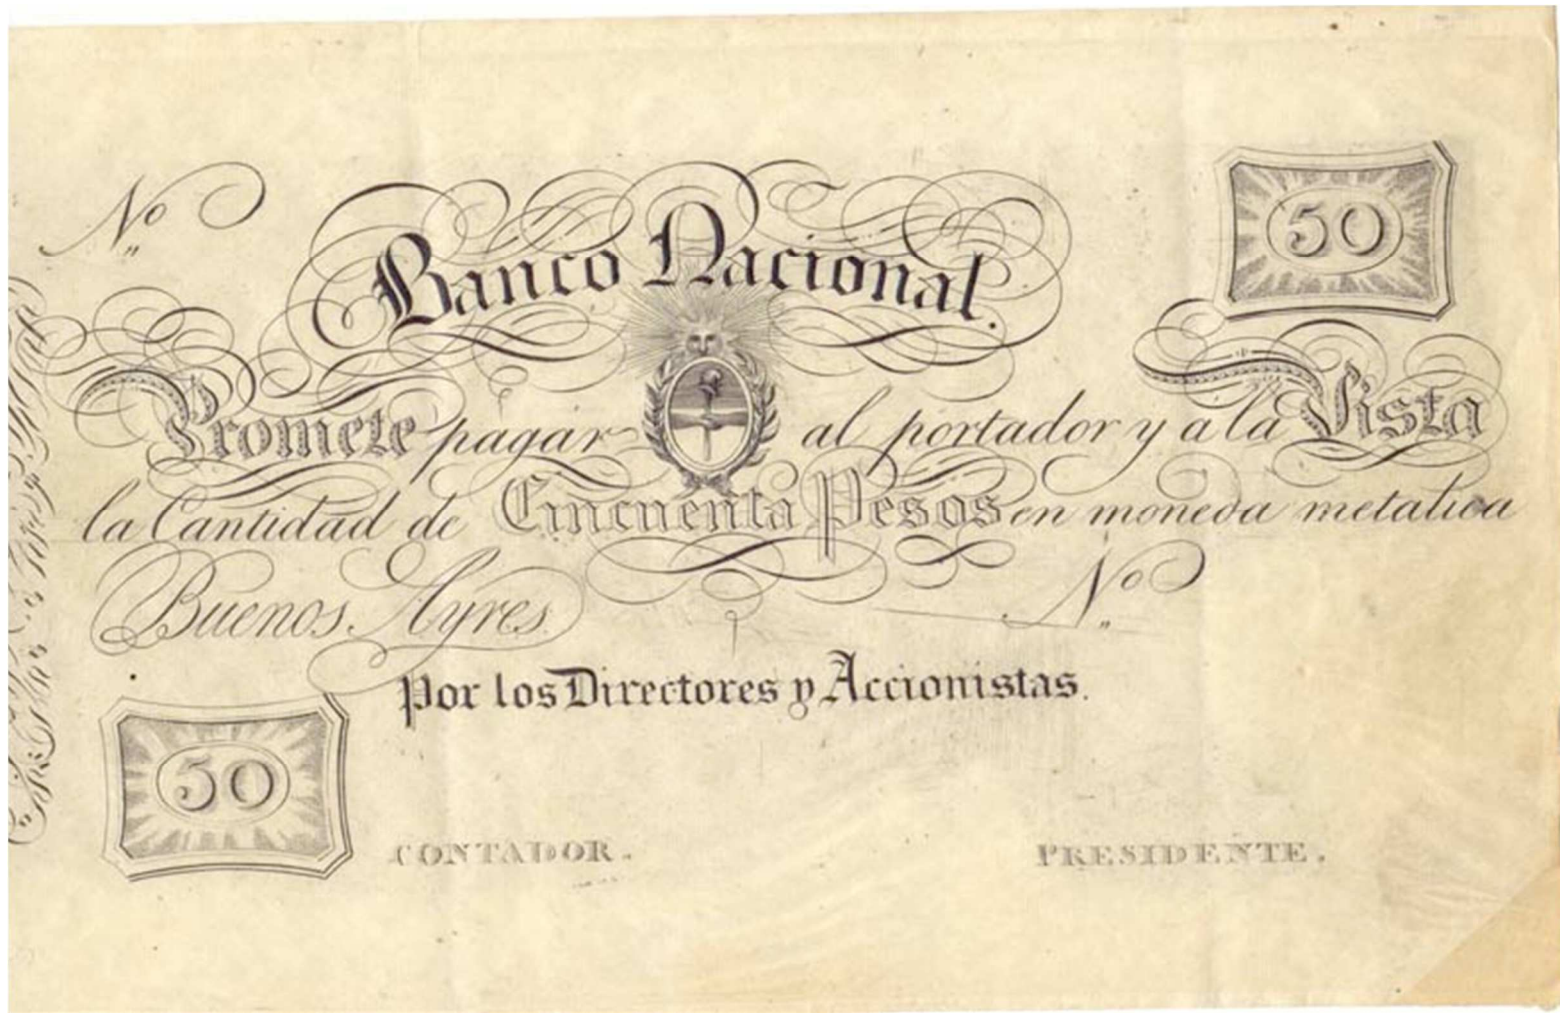 Nº
50
Banco Nacional.
Promete pagar al portador y a la Vista
la Cantidad de Cincuenta Pesos en moneda metalica
Buenos Ayres Nº
Por los Directores y Accionistas.
50
CONTADOR. PRESIDENTE.